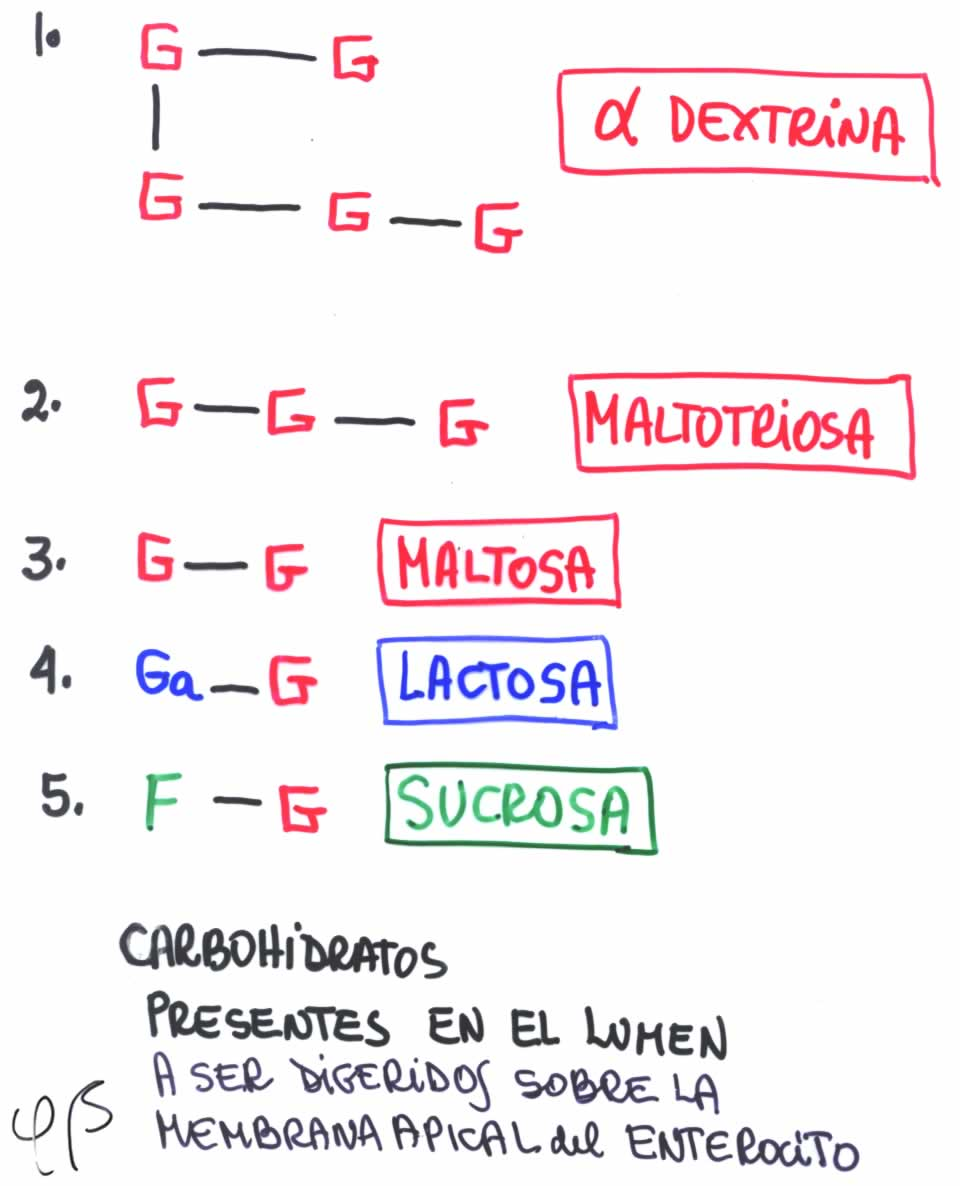 1. G — G
α DEXTRINA
G — G — G
2. G — G — G MALTOTRIOSA
3. G — G MALTOSA
4. Ga — G LACTOSA
5. F — G SUCROSA
CARBOHIDRATOS
PRESENTES EN EL LUMEN
A SER DIGERIDOS SOBRE LA
MEMBRANA APICAL del ENTEROCITO